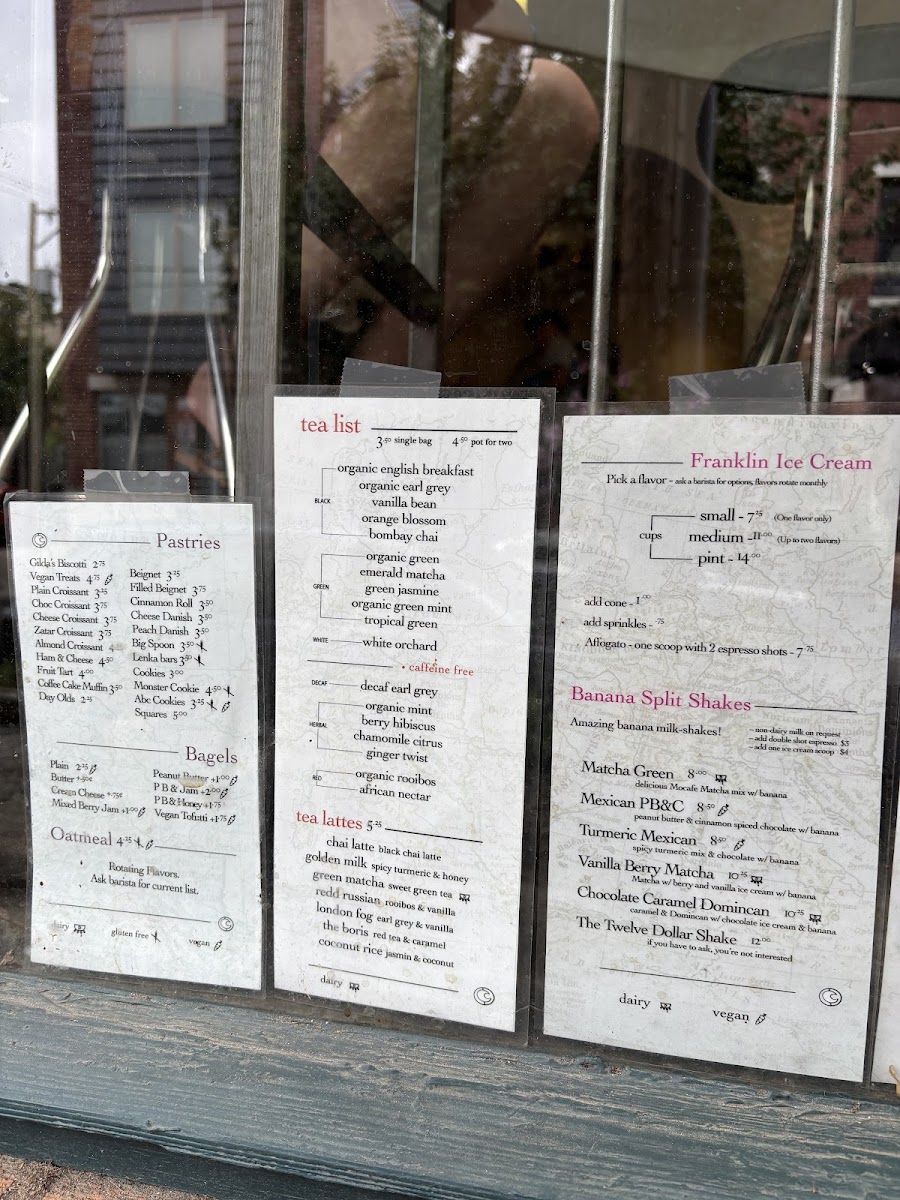 Pastries
Gilda's Biscotti 2.75
Vegan Treats 4.75
Plain Croissant 3.25
Choc Croissant 3.75
Cheese Croissant 3.75
Zatar Croissant 3.75
Almond Croissant
Ham & Cheese 4.50
Fruit Tart 4.00
Coffee Cake Muffin 3.50
Day Olds 2.25
Beignet 3.25
Filled Beignet 3.75
Cinnamon Roll 3.50
Cheese Danish 3.50
Peach Danish 3.50
Big Spoon 3.50
Lenka bars 3.50
Cookies 3.00
Monster Cookie 4.50
Abc Cookies 3.25
Squares 5.00
Bagels
Plain 2.25
Butter +.50¢
Cream Cheese +.75¢
Mixed Berry Jam +1.00
Peanut Butter +1.00
P B & Jam +2.00
PB & Honey +1.75
Vegan Tofutti +1.75
Oatmeal 4.25
Rotating Flavors.
Ask barista for current list.
dairy gluten free vegan
tea list
3.50 single bag 4.50 pot for two
BLACK
organic english breakfast
organic earl grey
vanilla bean
orange blossom
bombay chai
GREEN
organic green
emerald matcha
green jasmine
organic green mint
tropical green
WHITE white orchard
• caffeine free
DECAF decaf earl grey
HERBAL
organic mint
berry hibiscus
chamomile citrus
ginger twist
RED
organic rooibos
african nectar
tea lattes 5.25
chai latte black chai latte
golden milk spicy turmeric & honey
green matcha sweet green tea
redd russian rooibos & vanilla
london fog earl grey & vanilla
the boris red tea & caramel
coconut rice jasmin & coconut
dairy
Franklin Ice Cream
Pick a flavor - ask a barista for options, flavors rotate monthly
cups
small - 7.25 (One flavor only)
medium - 11.00 (Up to two flavors)
pint - 14.00
add cone - 1.00
add sprinkles - .75
Affogato - one scoop with 2 espresso shots - 7.75
Banana Split Shakes
Amazing banana milk-shakes!
– non-dairy milk on request
– add double shot espresso $3
– add one ice cream scoop $4
Matcha Green 8.00
delicious Mocafe Matcha mix w/ banana
Mexican PB&C 8.50
peanut butter & cinnamon spiced chocolate w/ banana
Turmeric Mexican 8.50
spicy turmeric mix & chocolate w/ banana
Vanilla Berry Matcha 10.25
Matcha w/ berry and vanilla ice cream w/ banana
Chocolate Caramel Domincan 10.25
caramel & Domincan w/ chocolate ice cream & banana
The Twelve Dollar Shake 12.00
if you have to ask, you're not interested
dairy vegan